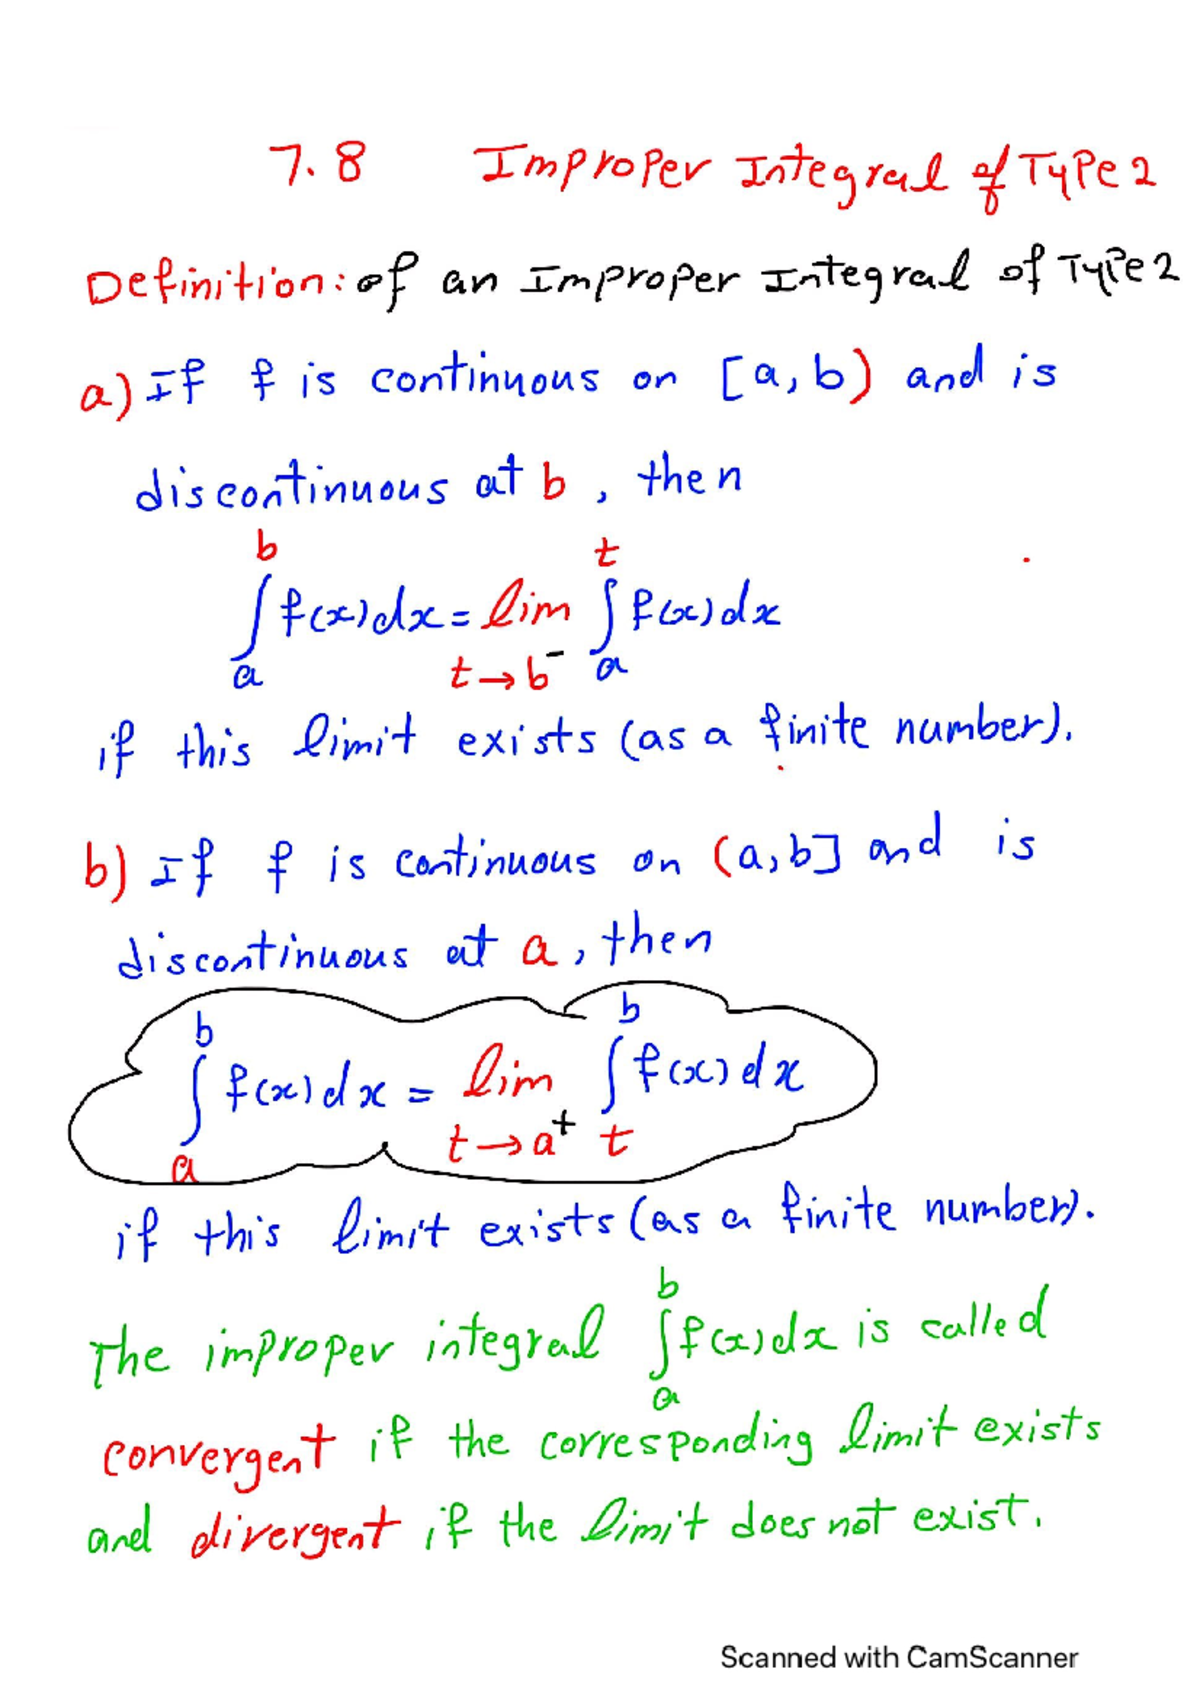 7.8 Improper Integral of Type 2
Definition: of an Improper Integral of Type 2
a) If f is continuous on [a, b) and is
discontinuous at b, then
∫_a^b f(x)dx = lim_{t→b⁻} ∫_a^t f(x)dx
if this limit exists (as a finite number).
b) If f is continuous on (a,b] and is
discontinuous at a, then
∫_a^b f(x)dx = lim_{t→a⁺} ∫_t^b f(x)dx
if this limit exists (as a finite number).
The improper integral ∫_a^b f(x)dx is called
convergent if the corresponding limit exists
and divergent if the limit does not exist.
Scanned with CamScanner